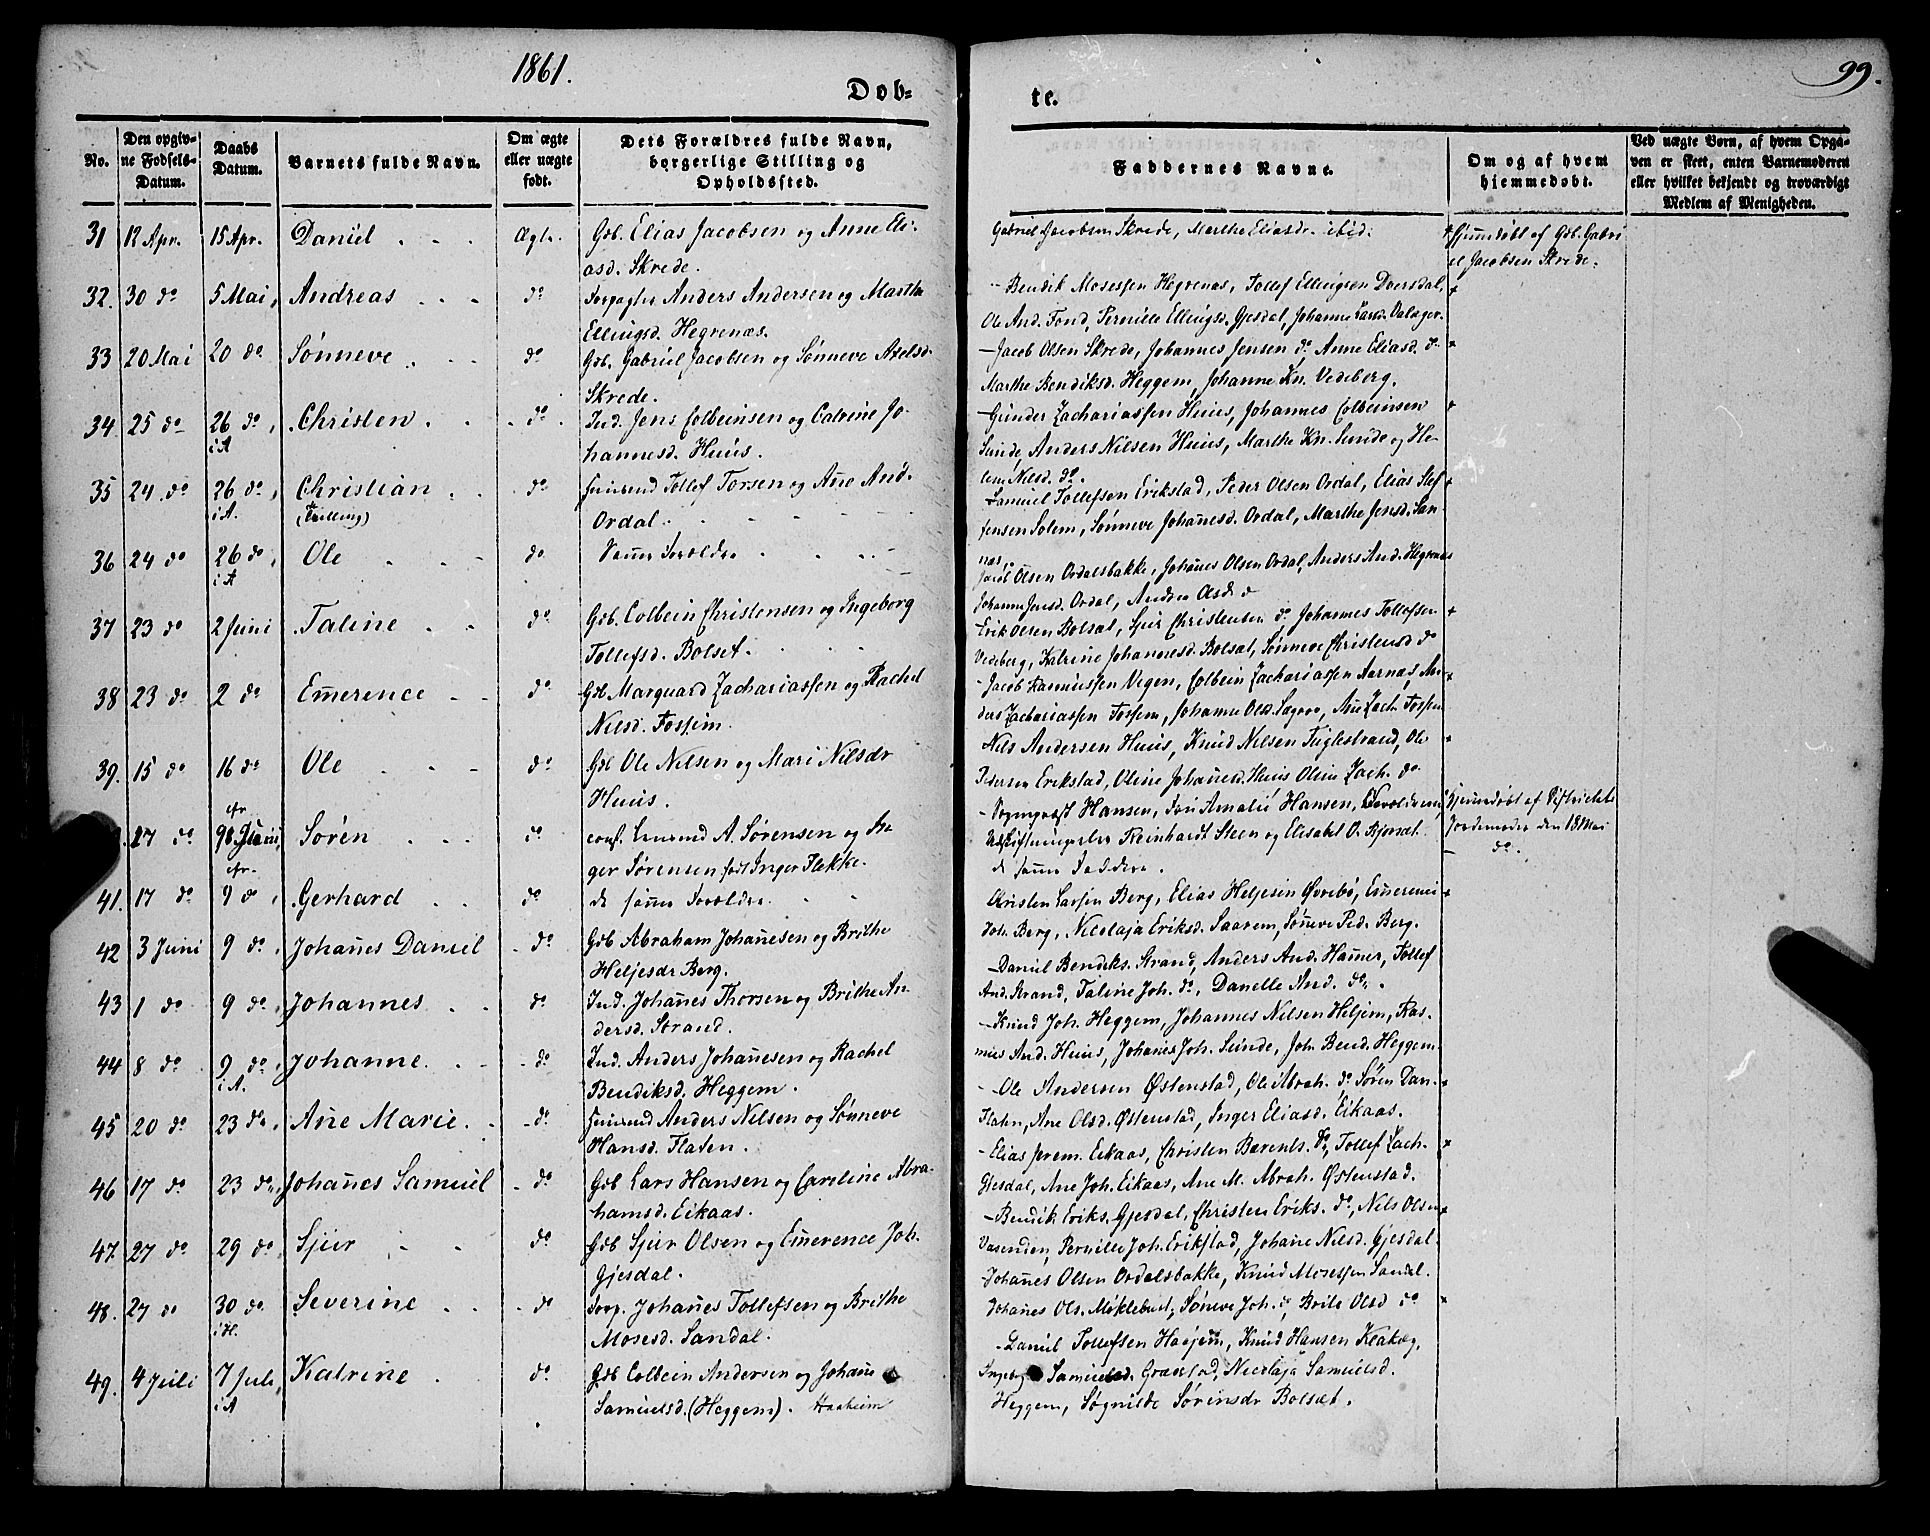 1861.
99.
Døb=
te.
No.
Den opgiv-
ne Fødsels-
Datum.
Daabs
Datum.
Barnets fulde Navn.
Om ægte
eller uægte
født.
Dets Forældres fulde Navn,
borgerlige Stilling og
Opholdssted.
Faddernes Navne.
Om og af hvem
hjemmedøbt.
Ved uægte Børn, af hvem Opga-
ven er skeet, enten Barnemoderen
eller hvilket bekjendt og troværdigt
Medlem af Menigheden.
31 12 Apr. 15 Apr. Daniel Ægte. Gdb. Elias Jacobsen og Anne Eli-
asd. Skrede.
Gabriel Jacobsen Skrede, Marthe Eliasdr. ibid. Hjemdøbt af Gdb. Gabri
el Jacobsen Skrede.
32. 30 do 5 Mai, Andreas do Anders Andersen og Marthe
Ellingsd. Hegrenæs.
Bendik Mosessen Hegrenæs, Tollef Ellingsen Dversdal,
Ole And. Fond, Pernille Ellingsd. Gjesdal, Johanne Larsd. Valager.
33 20 Mai 20 do Sønneve do Gdb. Gabriel Jacobsen og Sønneve Axelsd.
Skrede.
Jacob Olsen Skrede, Johannes Jensen do, Anne Eliasd. do
Marthe Bendiksd. Heggem, Johanne Kn. Vedeberg.
34 25 do 26 do, i A Christen do Ind. Jens Colbeinsen og Catrine Jo-
hannesd. Huus.
Gunder Zachariassen Huus, Johannes Colbeinsen
Sunde, Anders Nilsen Huus, Marthe Kn. Sunde og He-
lene Nilsd. do.
35 24 do 26 do, i A. Christian (Tvilling) do Tollef Torsen og Ane And.
Ordal.
Samuel Tollefsen Erikstad, Peder Olsen Ordal, Elias Stef
fensen Solem, Sønneve Johanesd. Ordal, Marthe Jensd. San-
næs.
36 24 do 26 do, i A Ole do Samme Forældre
Jacob Olsen Ordalsbakke, Johanes Olsen Ordal, Anders And. Hegrenæs
Johanne Jensd. Ordal, Andrea Asd. do
37 23 do 2 Juni Taline do Gdb. Colbein Christensen og Ingeborg
Tollefsd. Bolset.
Erik Olsen Bolsæt, Sjur Christensen do Johannes Tollefsen
Vedeberg, Katrine Johannesd. Bolsæt, Sønneve Christensd do
38 23 do 2 do Emerence do Gdb Marquard Zachariassen og Rachel
Nilsd. Fossem.
Jacob Rasmussen Vegen, Colbein Zachariassen Aarnæs, An-
ders Zachariassen Fossem, Johanne Olsd. Sægroe, Ane Zach. Fossem
39. 15 do 16 do Ole do Gdb Ole Nilsen og Mari Nilsdr
Huus.
Nils Andersen Huus, Knud Nilsen Fuglestrand, Ole
Pedersen Erikstad, Oline Johanesd. Huus Oline Zach. do
17 do 9 Juni, Søren do A. Sørensen og In-
ger Sørensen født Inger Flekke.
Sogneprest Hansen, Amalie Hansen, Forældrene, Hjemdøbt af Distriktets
Reinhardt Steen og Elisabet O. Jordemoder den 18 Mai
41. 17 do 9 do, Gerhard do de samme Forældre
de samme Faddere. do.
42 3 Juni 9 do Johanes Daniel do Gdb Abraham Johanesen og Brithe
Heljesdr Berg.
Christen Larsen Berg, Elias Heljesen Øvrebø, Emerence
Joh. Berg, Nicolaja Eriksd. Saarem, Sønneve Ped. Berg.
43 1 do 9 do Johannes do Ind. Johanes Thorsen og Brithe An-
dersd. Strand.
Daniel Bendiks. Strand, Anders And. Hamer, Tollef
And. Strand, Taline Joh. do, Danelle And. do.
44 8 do 9 do, i A. Johanne do Ind. Anders Johanesen og Rachel
Bendiksd. Heggem.
Knud Joh. Heggem, Johannes Nilsen Heljem, Ras-
mus And. Huus, Johanes Joh. Sunde, Joh. Bend. Heggem.
45 20 do 23 do, Ane Marie do Anders Nilsen og Sønneve
Hansd. Flaten.
Ole Andersen Østenstad, Ole Abrah. do Søren Dan.
Flaten, Ane Olsd. Østenstad, Inger Eliasd. Eikaas.
46 17 do 23 do, Johanes Samuel do Gdb Lars Hansen og Caroline Abra-
hamsd. Eikaas.
Elias Jerem. Eikaas, Christen Bærents. do, Tollef Zach.
Gjesdal, Ane Joh. Eikaas, Ane M. Abrah. Østenstad.
47. 27 do 29 do, Sjur do Gdb Sjur Olsen og Emerence Joh.
Gjesdal.
Bendik Eriks. Gjesdal, Christen Eriks. do, Nils Olsen
Vasenden, Pernille Joh. Erikstad, Johane Nilsd. Gjesdal.
48. 27 do 30 do i H. Severine do Johanes Tollefsen og Brithe
Mosesd. Sandal.
Johanes Olsen Ordalsbakke, Knud Mosessen Sandal.
Johanes Ols. Møklebust, Sønneve Joh. do Brite Olsd do
49. 4 Juli 7 Juli, i A Katrine do Gdb Colbein Andersen og Johane
Samuelsd. (Heggem). Haaheim
Daniel Tollefsen Haajem, Knud Hansen Klakeg,
Ingebg Samuelsd. Grønstad, Nicolaja Samuelsd.
Heggem, Søgnilde Sørensdr Bolsæt.